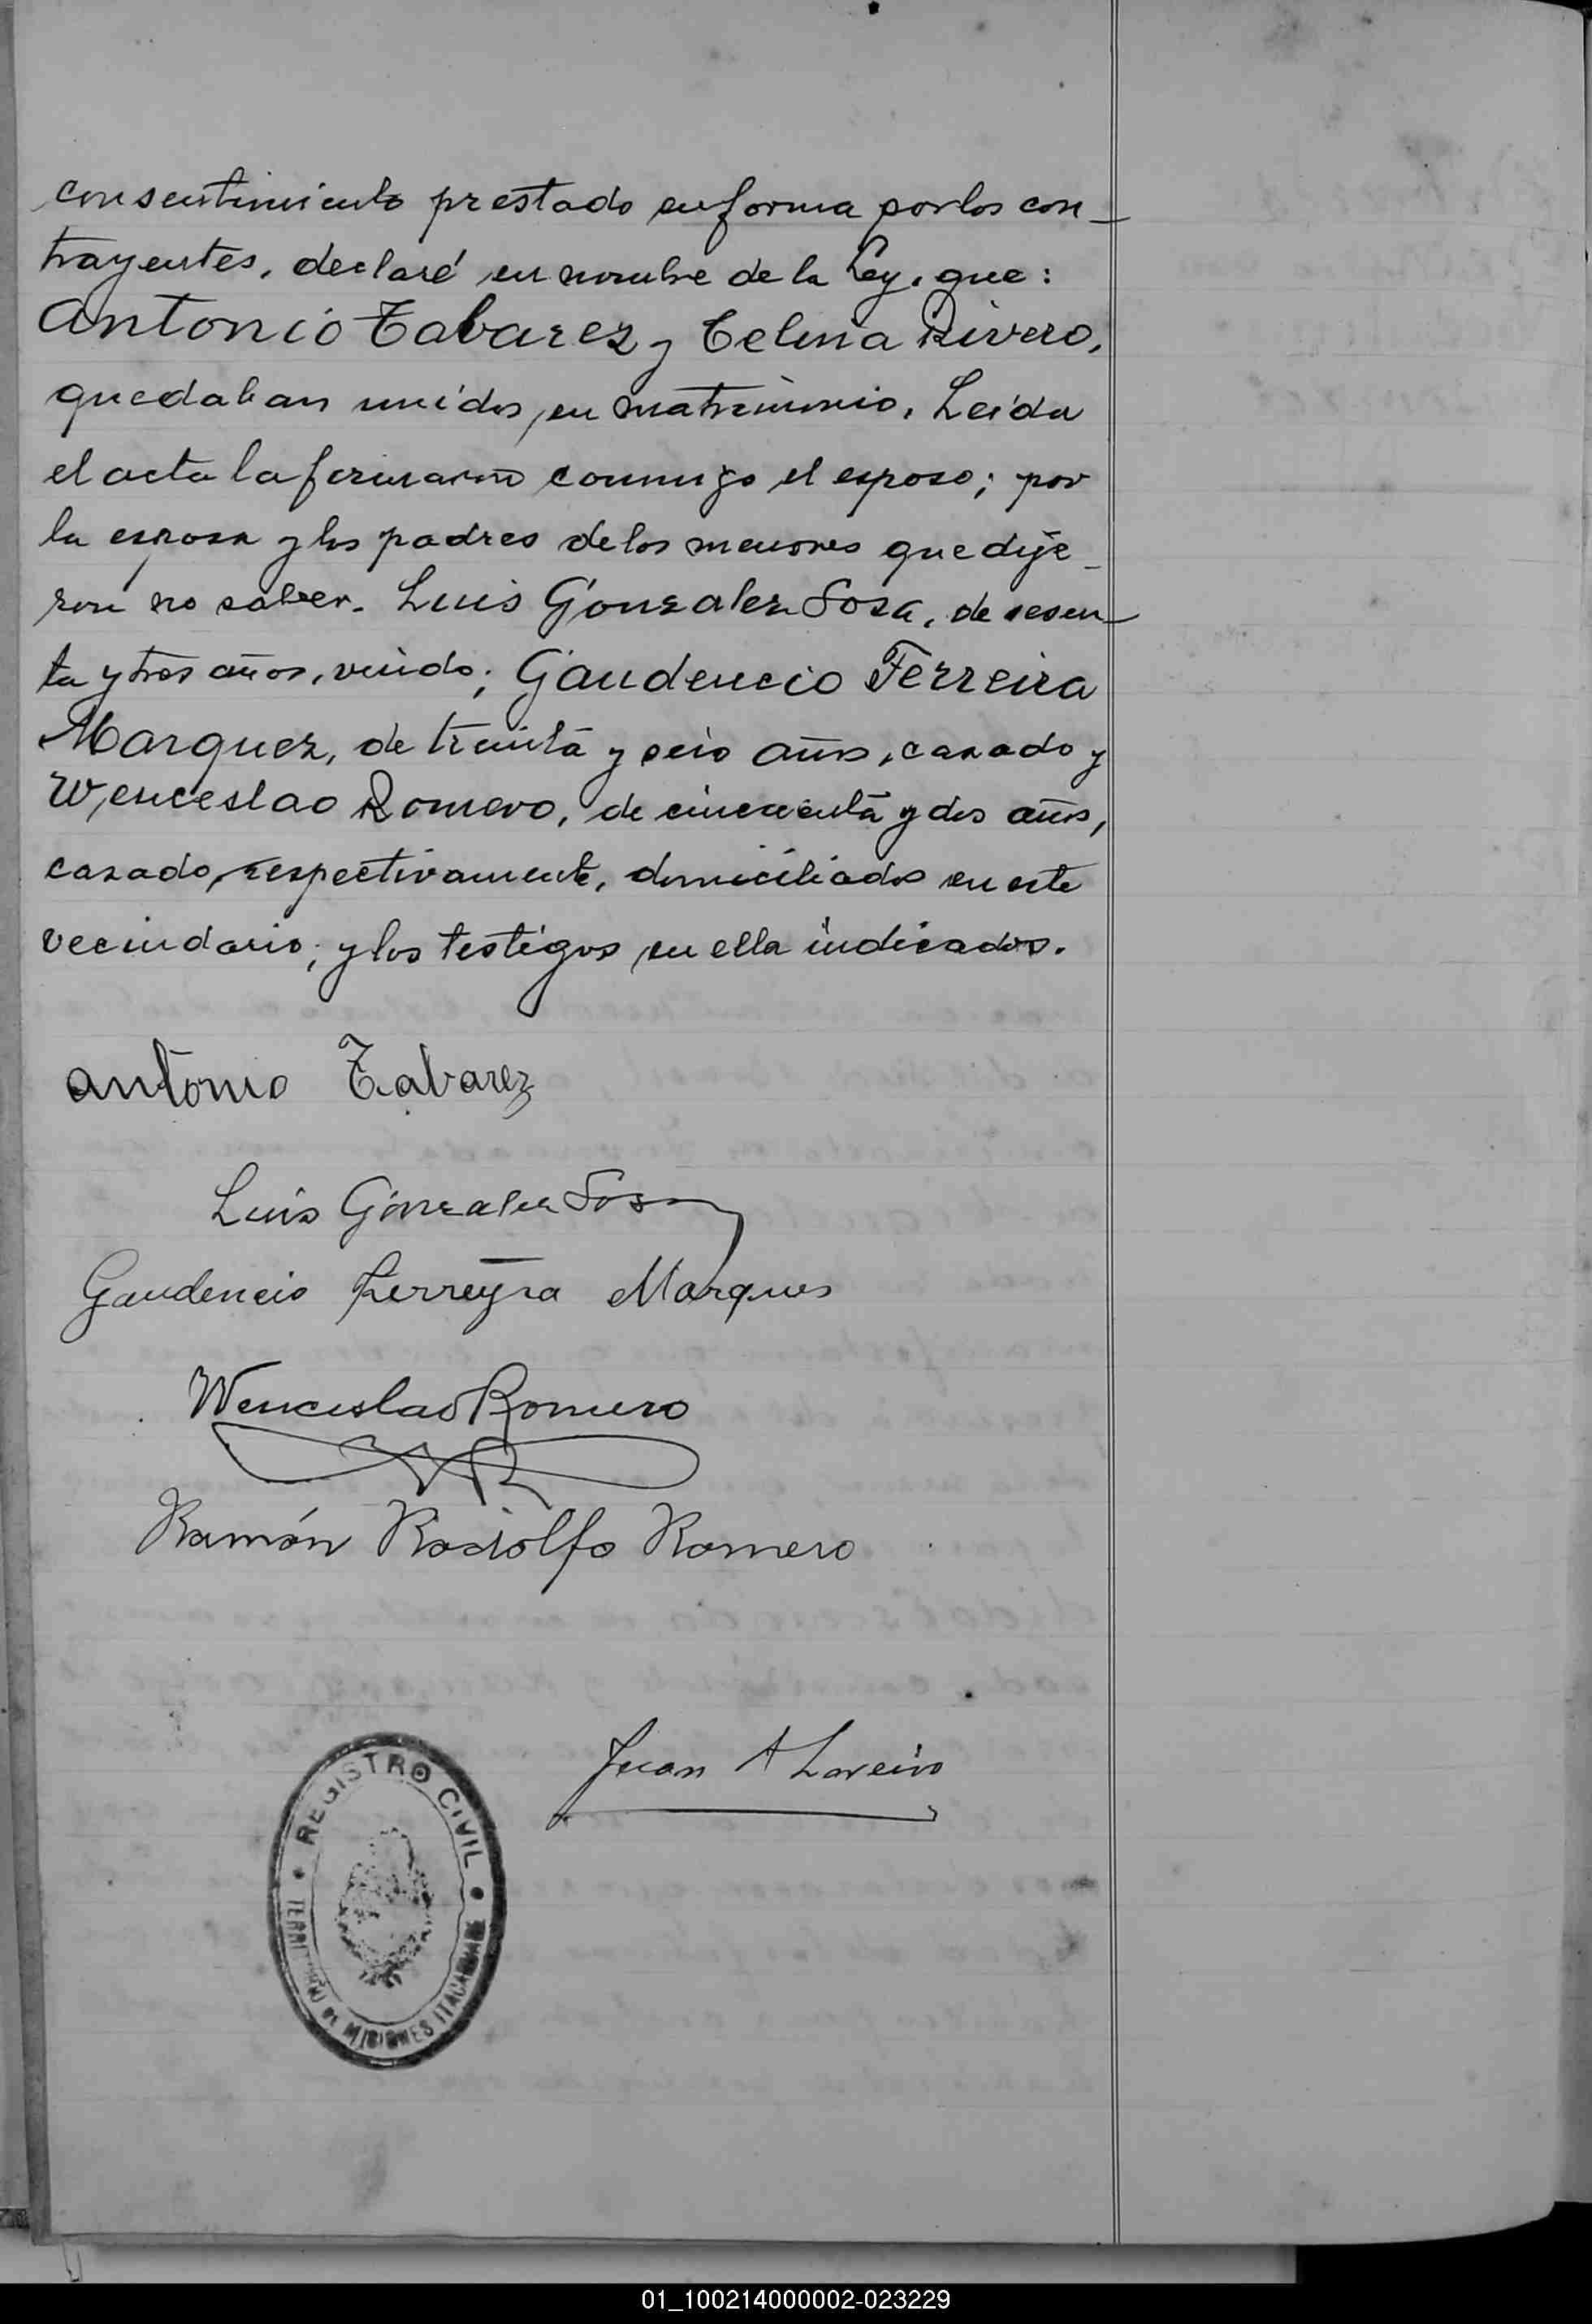 consentimiento prestado en forma por los con-
trayentes, declaré en nombre de la Ley, que:
Antonio Tabarez y Celina Rivero,
quedaban unidos en matrimonio. Leida
el acta la firmaron conmigo el esposo; por
la esposa y los padres de los menores que dije-
ron no saber. Luis Gonzalez Sosa, de sesen-
ta y tres años, viudo; Gaudencio Ferreira
Marquez, de treinta y seis años, casado y
Wenceslao Romero, de cincuenta y dos años,
casado, respectivamente, domiciliados en este
vecindario; y los testigos en ella indicados.
Antonio Tabarez
Luis Gonzalez Sosa
Gaudencio Ferreyra Marques
Wenceslao Romero
WR
Ramón Rodolfo Romero
Juan A Loreiro
REGISTRO CIVIL
TERRITORIO DE MISIONES ITACARUARE
01_100214000002-023229